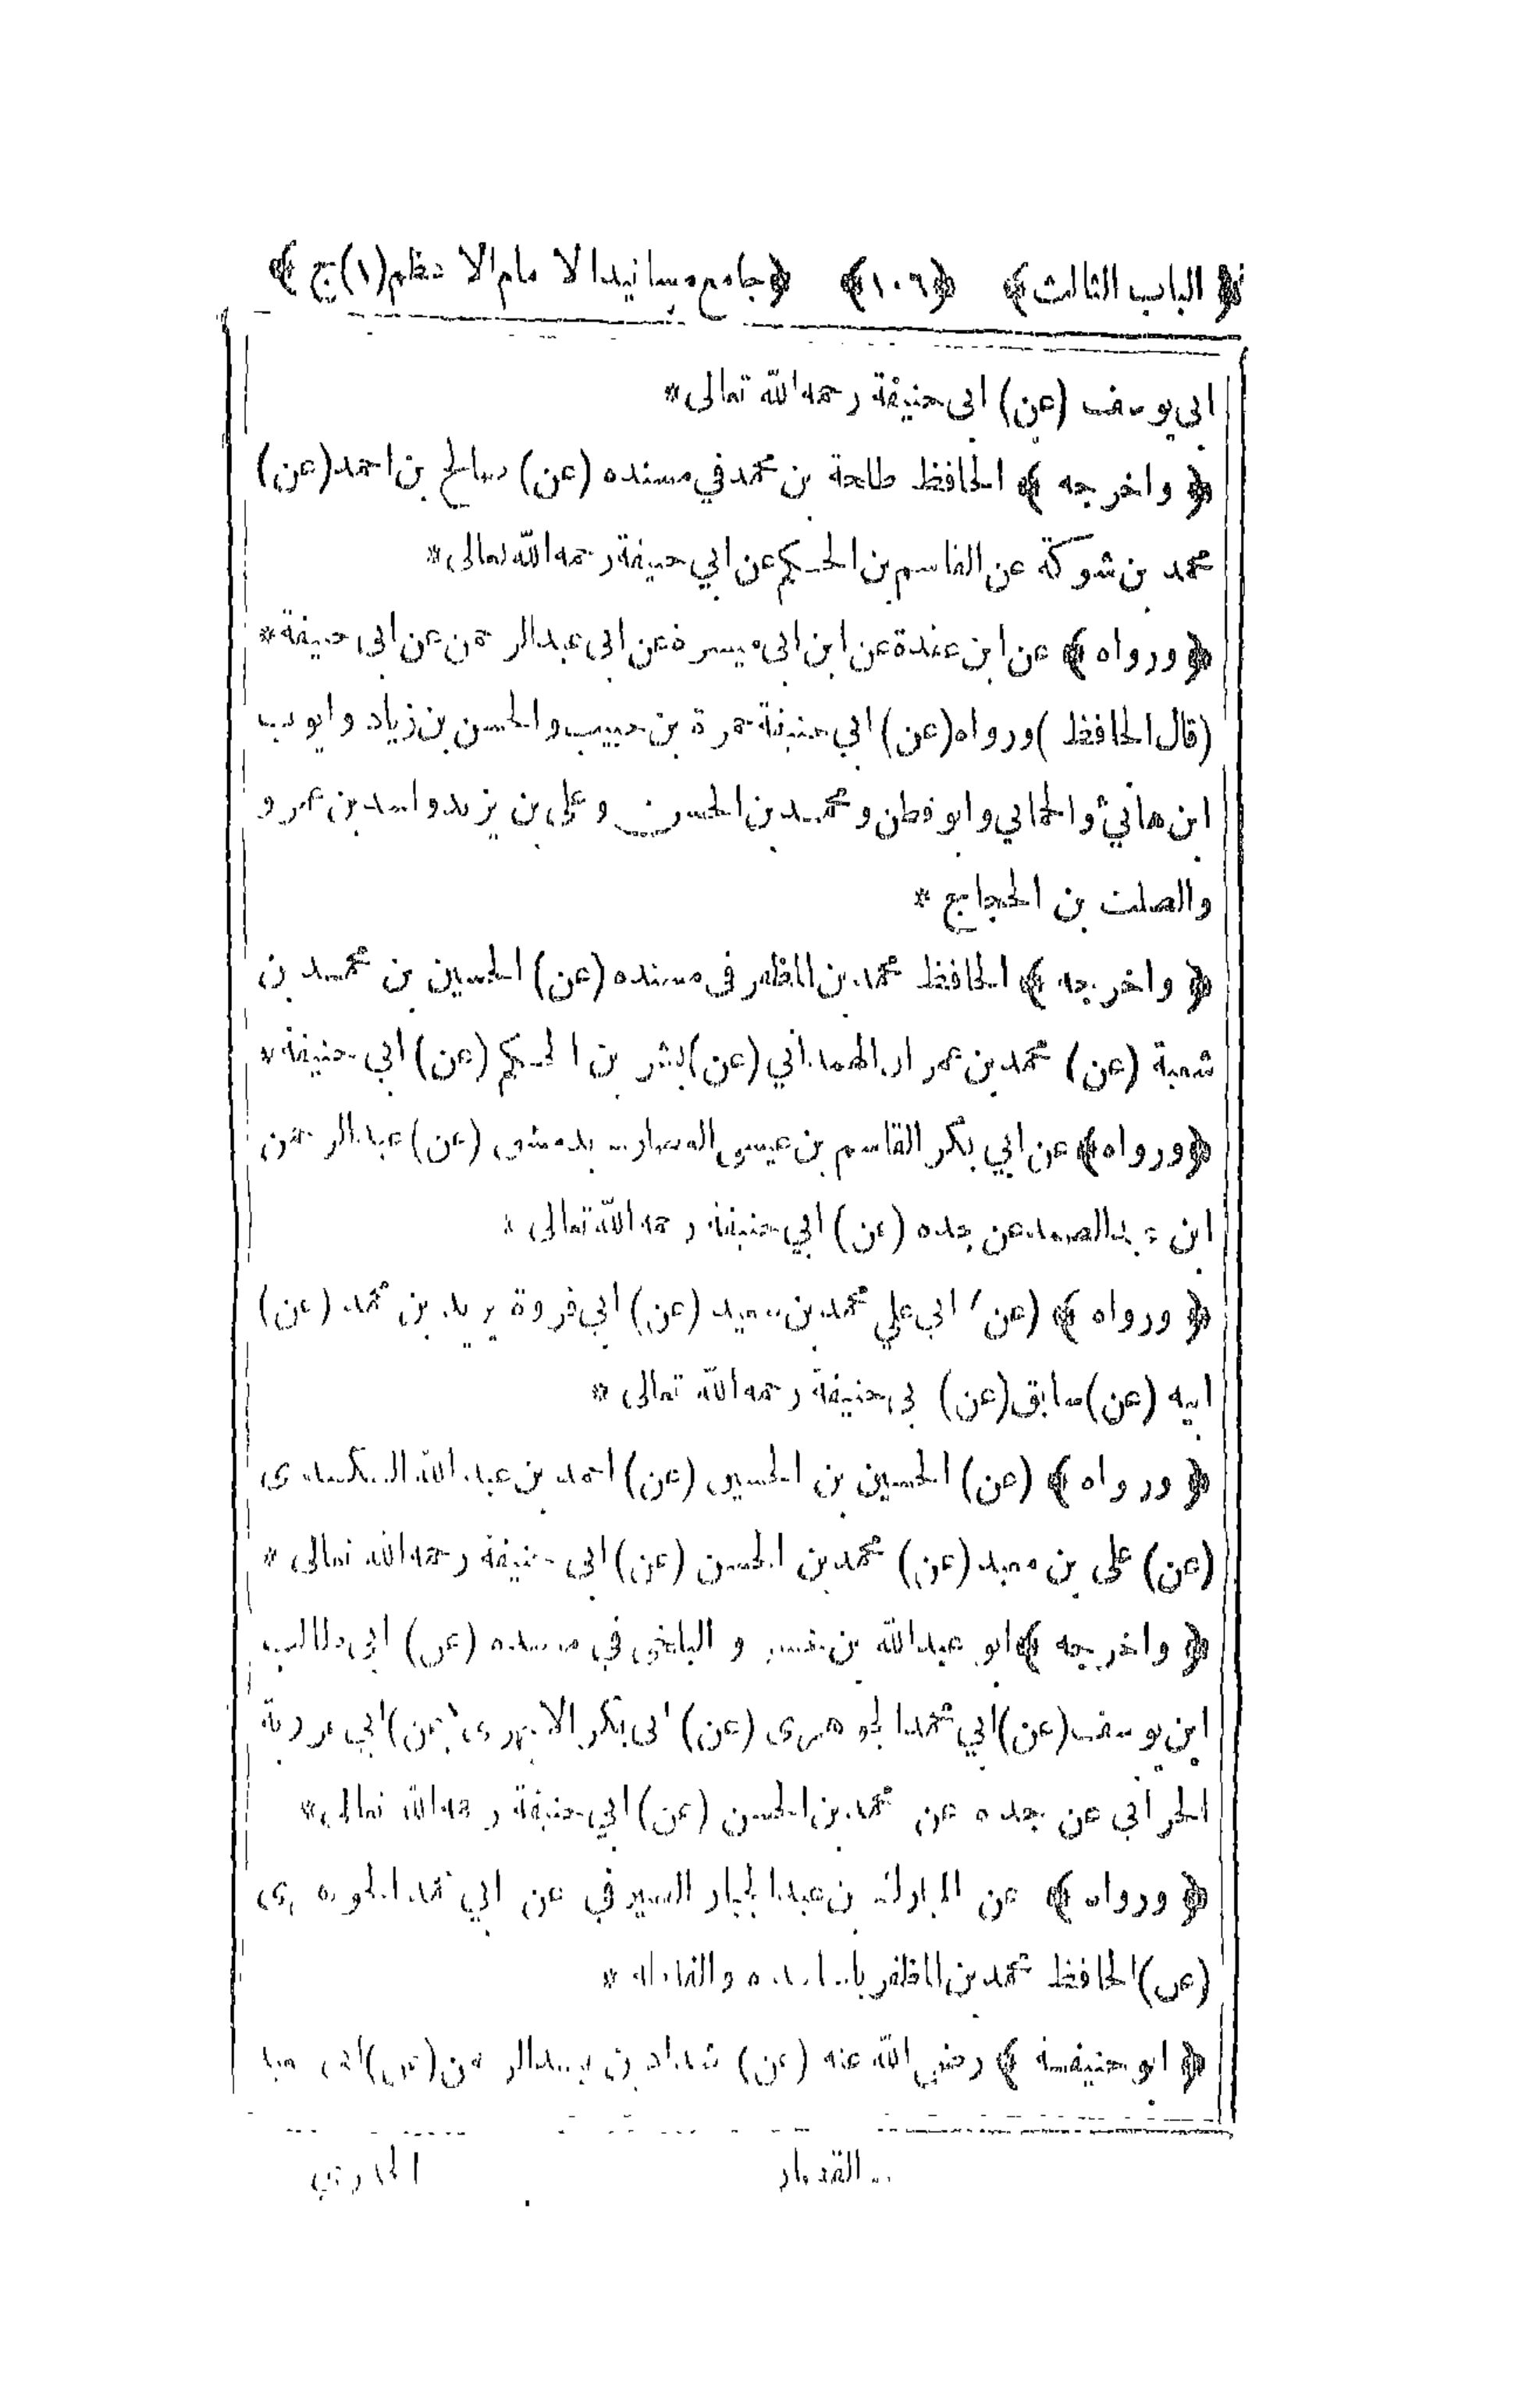 ﴿ الباب الثالث ﴾ ﴿١٠٦﴾ ﴿جامع مسانيد الامام الاعظم(١)ج ﴾
ابى يوسف (عن) ابى حنيفة رحمه الله تعالى*
﴿ واخرجه ﴾ الحافظ طلحة بن محمد في مسنده (عن) صالح بن احمد (عن)
محمد بن شوكة عن القاسم بن الحكم عن ابي حنيفة رحمه الله تعالى*
﴿ ورواه ﴾ عن ابن عقدة عن ابن ابى ميسرة عن ابى عبد الرحمن عن ابى حنيفة*
(قال الحافظ) ورواه (عن) ابي حنيفة حمزة بن حبيب والحسن بن زياد وايوب
ابن هانئ والحماني وابو قطن ومحمد بن الحسن وعلى بن يزيد واسد بن عمرو
والصلت بن الحجاج *
﴿ واخرجه ﴾ الحافظ محمد بن المظفر فى مسنده (عن) الحسين بن محمد بن
شعبة (عن) محمد بن عمران الهمداني (عن) بشر بن الحكم (عن) ابي حنيفة*
﴿ورواه﴾ عن ابي بكر القاسم بن عيسى بدمشق (عن) عبد الرحمن
ابن عبد الصمد عن جده (عن) ابي حنيفة رحمه الله تعالى *
﴿ ورواه ﴾ (عن) ابي علي محمد بن سعيد (عن) ابي فروة يزيد بن محمد (عن)
ابيه (عن) سابق (عن) ابى حنيفة رحمه الله تعالى *
﴿ ورواه ﴾ (عن) الحسين بن الحسين (عن) احمد بن عبد الله الكندى
(عن) على بن معبد (عن) محمد بن الحسن (عن) ابى حنيفة رحمه الله تعالى *
﴿ واخرجه ﴾ ابو عبد الله بن خسرو البلخى في مسنده (عن) ابى طالب
ابن يوسف (عن) ابي محمد الجوهرى (عن) ابى بكر الابهرى (عن) ابي عروبة
الحراني عن جده عن محمد بن الحسن (عن) ابي حنيفة رحمه الله تعالى*
﴿ ورواه ﴾ عن المبارك بن عبد الجبار الصيرفي عن ابي محمد الجوهرى
(عن) الحافظ محمد بن المظفر باسانيده والفاظه *
﴿ ابو حنيفة ﴾ رضى الله عنه (عن) شداد بن عبد الرحمن (عن) ابى سعيد
الخدري